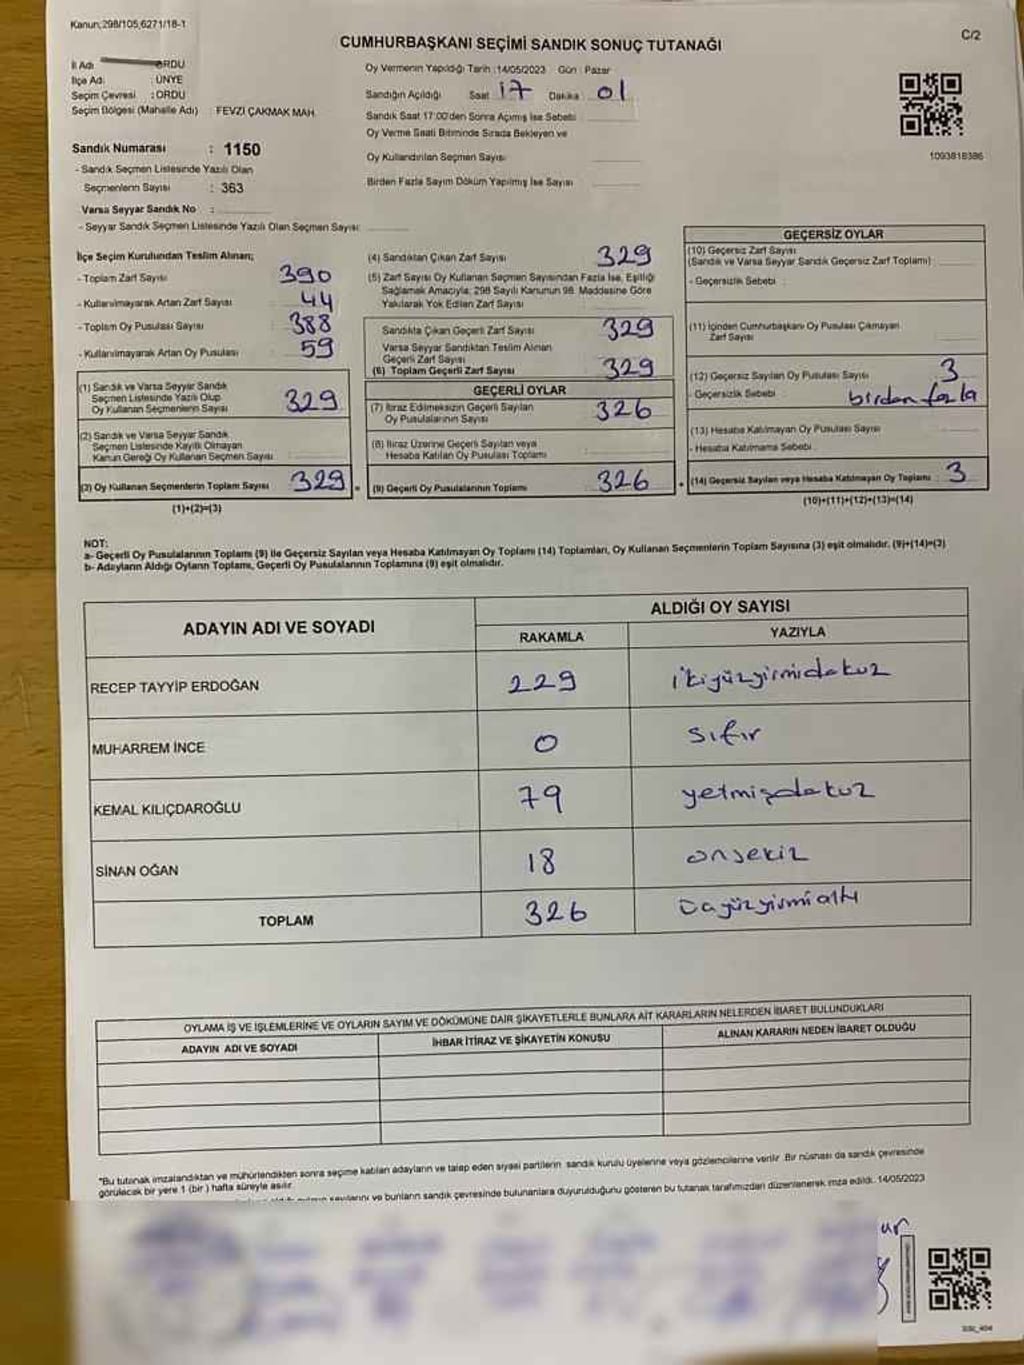 Kanun;298/105,6271/18-1
C/2
CUMHURBAŞKANI SEÇİMİ SANDIK SONUÇ TUTANAĞI
İl Adı ORDU
İlçe Adı : ÜNYE
Seçim Çevresi : ORDU
Seçim Bölgesi (Mahalle Adı) : FEVZİ ÇAKMAK MAH.
Sandık Numarası : 1150
- Sandık Seçmen Listesinde Yazılı Olan
Seçmenlerin Sayısı : 363
Varsa Seyyar Sandık No :
- Seyyar Sandık Seçmen Listesinde Yazılı Olan Seçmen Sayısı:
Oy Vermenin Yapıldığı Tarih :14/05/2023 Gün : Pazar
Sandığın Açıldığı Saat 17 Dakika : 01
Sandık Saat 17:00'den Sonra Açımış İse Sebebi
Oy Verme Saati Bitiminde Sırada Bekleyen ve
Oy Kullandırılan Seçmen Sayısı
Birden Fazla Sayım Döküm Yapılmış İse Sayısı
1093818386
İlçe Seçim Kurulundan Teslim Alınan;
- Toplam Zarf Sayısı 390
- Kullanılmayarak Artan Zarf Sayısı 44
- Toplam Oy Pusulası Sayısı 388
- Kullanılmayarak Artan Oy Pusulası 59
(1) Sandık ve Varsa Seyyar Sandık
Seçmen Listesinde Yazılı Olup
Oy Kullanan Seçmenlerin Sayısı 329
(2) Sandık ve Varsa Seyyar Sandık
Seçmen Listesinde Kayıtlı Olmayan
Kanun Gereği Oy Kullanan Seçmen Sayısı
(3) Oy Kullanan Seçmenlerin Toplam Sayısı 329 =
(1)+(2)=(3)
(4) Sandıktan Çıkan Zarf Sayısı 329
(5) Zarf Sayısı Oy Kullanan Seçmen Sayısından Fazla İse, Eşitliği
Sağlamak Amacıyla; 298 Sayılı Kanunun 98. Maddesine Göre
Yakılarak Yok Edilen Zarf Sayısı
Sandıkta Çıkan Geçerli Zarf Sayısı 329
Varsa Seyyar Sandıktan Teslim Alınan
Geçerli Zarf Sayısı
(6) Toplam Geçerli Zarf Sayısı 329
GEÇERLİ OYLAR
(7) İtiraz Edilmeksizin Geçerli Sayılan
Oy Pusulalarının Sayısı 326
(8) İtiraz Üzerine Geçerli Sayılan veya
Hesaba Katılan Oy Pusulası Toplamı
(9) Geçerli Oy Pusulalarının Toplamı 326 +
GEÇERSİZ OYLAR
(10) Geçersiz Zarf Sayısı
(Sandık ve Varsa Seyyar Sandık Geçersiz Zarf Toplamı)
- Geçersizlik Sebebi :
(11) İçinden Cumhurbaşkanı Oy Pusulası Çıkmayan
Zarf Sayısı
(12) Geçersiz Sayılan Oy Pusulası Sayısı 3
- Geçersizlik Sebebi : birden fazla
(13) Hesaba Katılmayan Oy Pusulası Sayısı
- Hesaba Katılmama Sebebi
(14) Geçersiz Sayılan veya Hesaba Katılmayan Oy Toplamı : 3
(10)+(11)+(12)+(13)=(14)
NOT:
a- Geçerli Oy Pusulalarının Toplamı (9) ile Geçersiz Sayılan veya Hesaba Katılmayan Oy Toplamı (14) Toplamları, Oy Kullanan Seçmenlerin Toplam Sayısına (3) eşit olmalıdır. (9)+(14)=(3)
b- Adayların Aldığı Oyların Toplamı, Geçerli Oy Pusulalarının Toplamına (9) eşit olmalıdır.
ADAYIN ADI VE SOYADI
ALDIĞI OY SAYISI
RAKAMLA YAZIYLA
RECEP TAYYİP ERDOĞAN 229 ikiyüzyirmidokuz
MUHARREM İNCE 0 sıfır
KEMAL KILIÇDAROĞLU 79 yetmişdokuz
SİNAN OĞAN 18 onsekiz
TOPLAM 326 üçyüzyirmialtı
OYLAMA İŞ VE İŞLEMLERİNE VE OYLARIN SAYIM VE DÖKÜMÜNE DAİR ŞİKAYETLERLE BUNLARA AİT KARARLARIN NELERDEN İBARET BULUNDUKLARI
ADAYIN ADI VE SOYADI İHBAR İTİRAZ VE ŞİKAYETİN KONUSU ALINAN KARARIN NEDEN İBARET OLDUĞU
*Bu tutanak imzalandıktan ve mühürlendikten sonra seçime katılan adayların ve talep eden siyasi partilerin sandık kurulu üyelerine veya gözlemcilerine verilir. Bir nüshası da sandık çevresinde
görülecek bir yere 1 (bir) hafta süreyle asılır.
sayılarını ve bunların sandık çevresinde bulunanlara duyurulduğunu gösteren bu tutanak tarafımızdan düzenlenerek imza edildi. 14/05/2023
ur